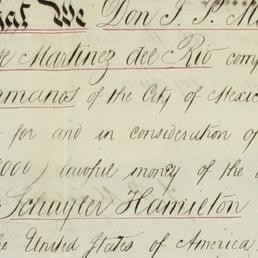 that We Don J. P. M
se Martinez del Rio comp
rmanos of the City of Mexic
for and in consideration of
000) lawful money of the
Schuyler Hamilton
he United States of America